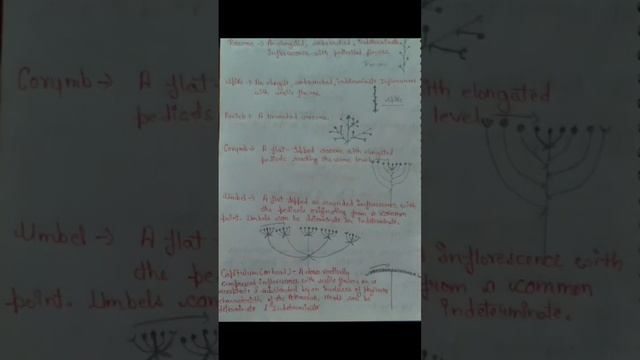 Raceme → An elongated, unbranched, indeterminate
Inflorescence with pedicelled flowers.
Raceme
Spike → An elongated, unbranched, indeterminate Inflorescence
with sessile flowers.
spike
Panicle → A branched raceme.
Corymb → A flat-topped raceme with elongated
pedicels reaching the same level
Umbel → A flat topped or rounded inflorescence with
the pedicels originating from a common
point. Umbels can be determinate or indeterminate.
Capitulum (or head) → A dense vertically
compressed inflorescence with sessile flowers on a
receptacle & subtended by an involucre of phyllaries
characteristic of the Asteraceae. Heads can be
determinate & Indeterminate
Corymb → A flat-
pedicels
with elongated
level
Umbel → A flat-
the pe
point. Umbels can
inflorescence with
from a common
indeterminate.